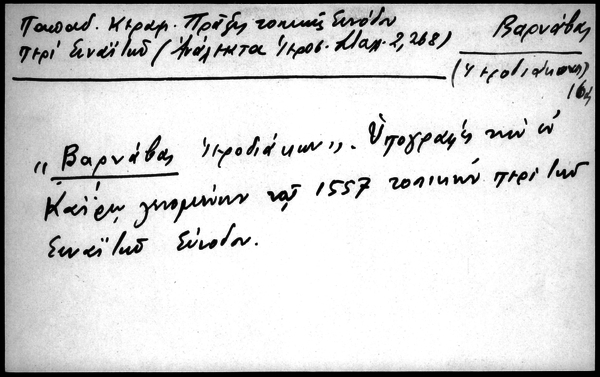 Παπαδ. Κεραμ. Πράξις τοπικῆς Συνόδου
περί Σιναϊτῶν (Ἀνάλεκτα Ἱεροσ. Σταχ. 2, 268)
Βαρνάβας
(Ἱεροδιάκονος)
16ος
"Βαρνάβας ἱεροδιάκων". Ὑπογραφεύς τῆς ἐν
Καΐρῳ γενομένης τῷ 1557 τοπικῆς περί τῶν
Σιναϊτῶν Συνόδου.